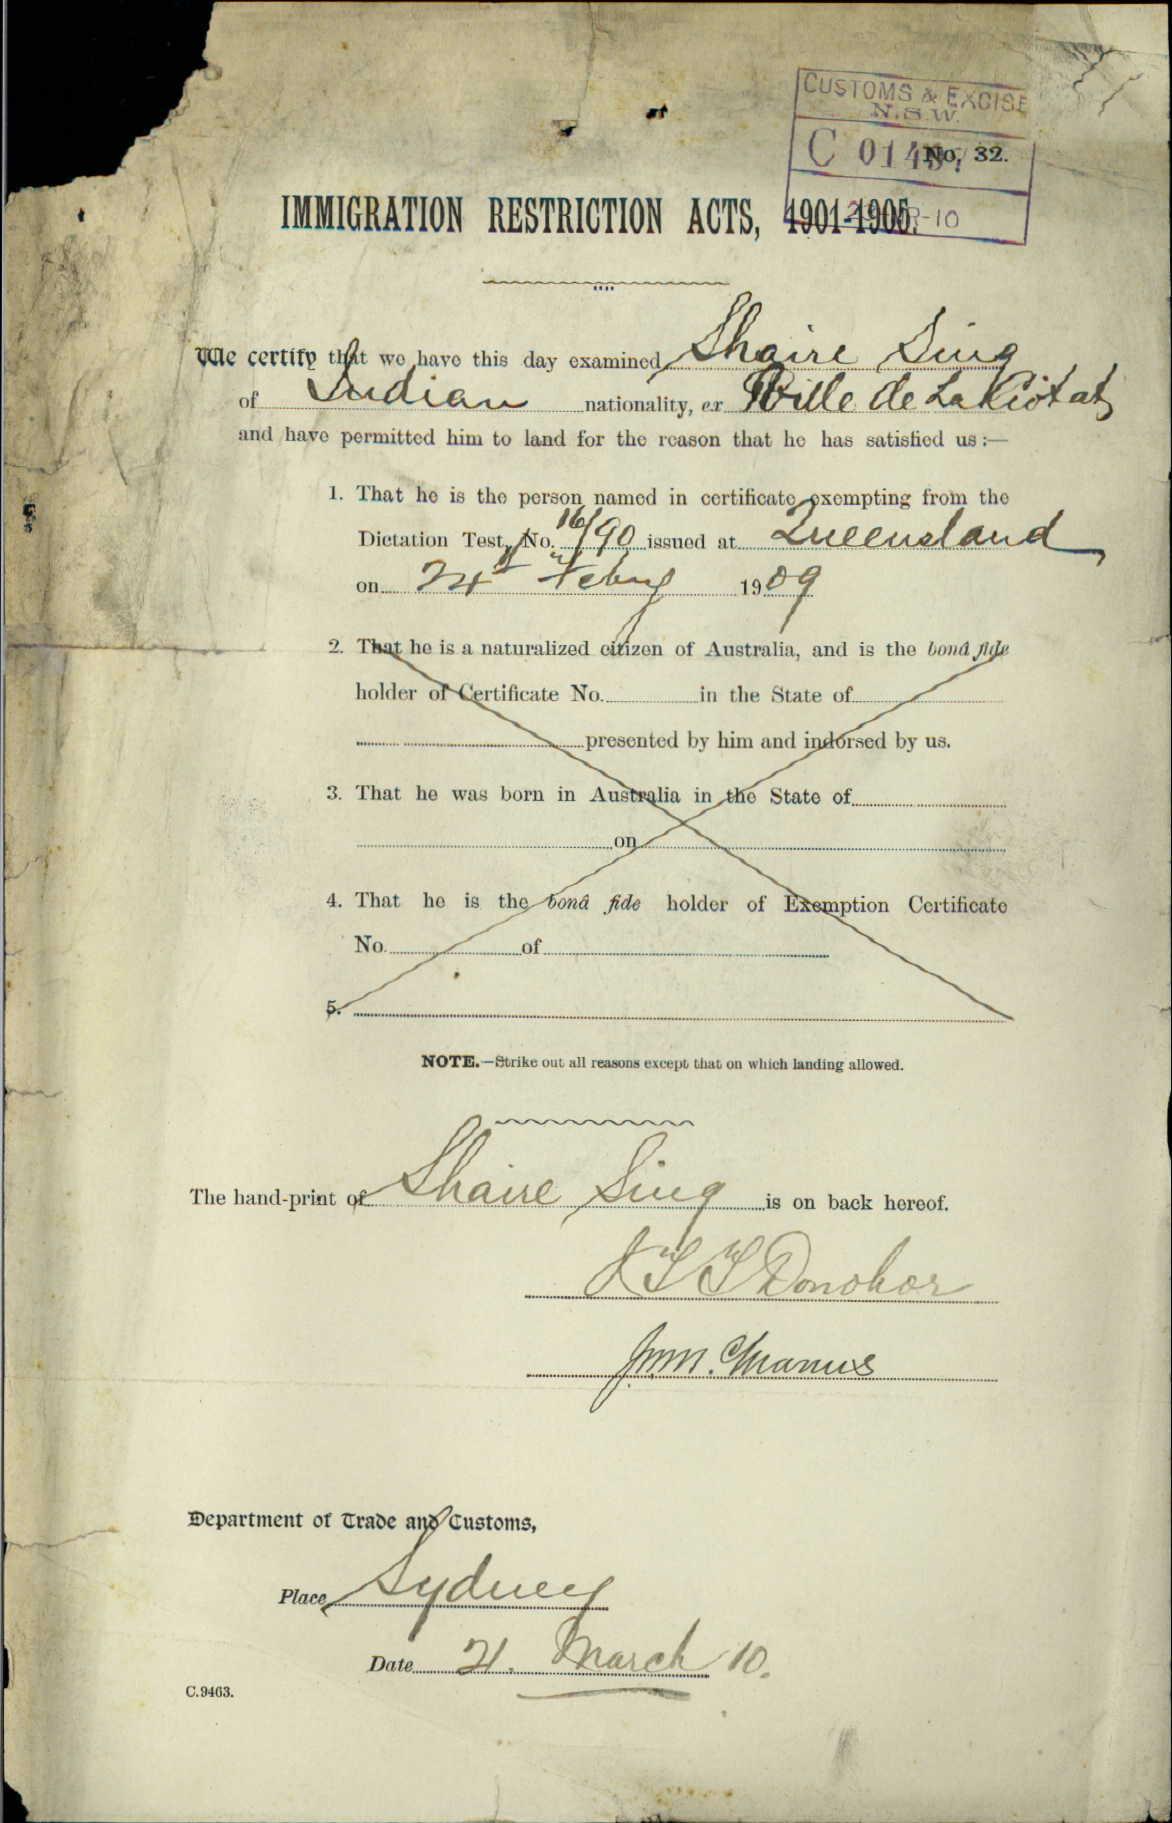 CUSTOMS & EXCISE
N.S.W.
C 014
No. 32.
IMMIGRATION RESTRICTION ACTS, 1901-1905.
-10
We certify that we have this day examined Shaire Sing
of Indian nationality, ex Ville de La Ciotat
and have permitted him to land for the reason that he has satisfied us:—
1. That he is the person named in certificate exempting from the
Dictation Test, No. 16/90 issued at Queensland
on 24th Feby 1909
2. That he is a naturalized citizen of Australia, and is the bonâ fide
holder of Certificate No. in the State of
presented by him and indorsed by us.
3. That he was born in Australia in the State of
on
4. That he is the bonâ fide holder of Exemption Certificate
No. of
5.
NOTE.—Strike out all reasons except that on which landing allowed.
The hand-print of Shaire Sing is on back hereof.
Donohoe
Department of Trade and Customs,
Place Sydney
Date 21. March 10.
C.9463.